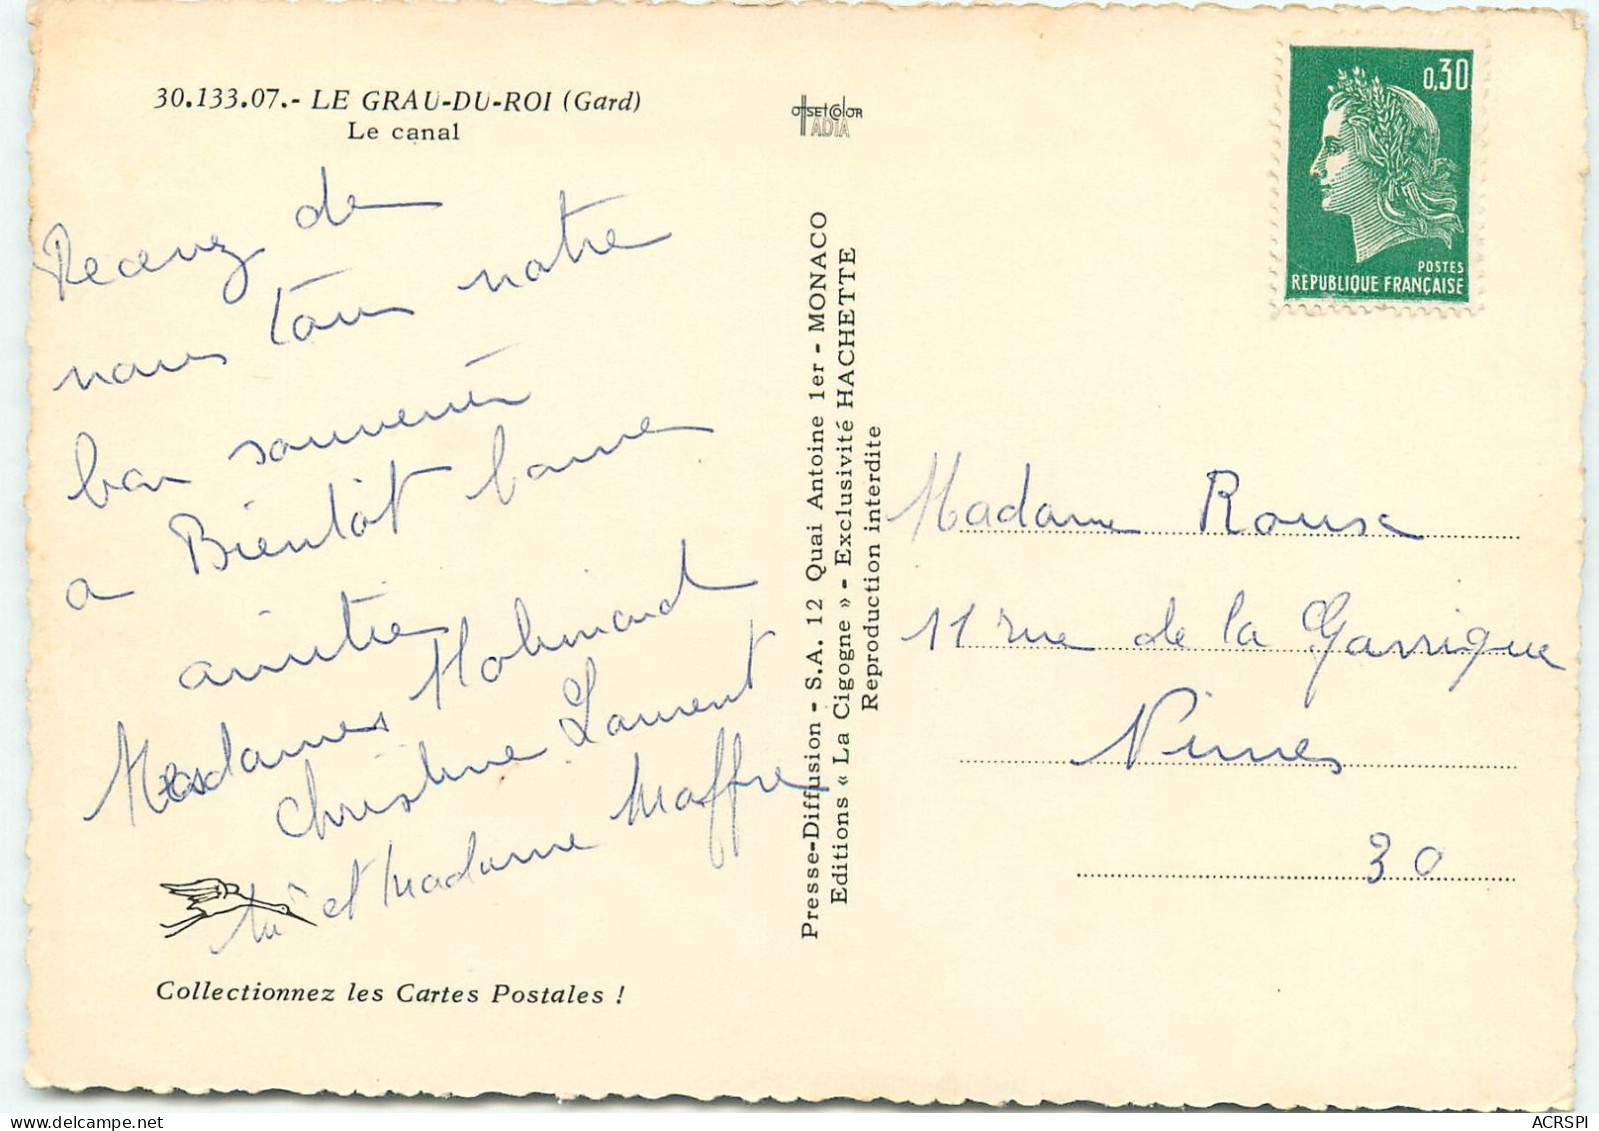 30.133.07.- LE GRAU-DU-ROI (Gard)
Le canal
Recevez de
nous tous notre
bon souvenir
a Bientôt bonne
amitié
Mesdames
Christine Laurent
et Madame Maffre
Collectionnez les Cartes Postales !
OFFSETCOLOR
IADIA
Presse-Diffusion - S.A. 12 Quai Antoine 1er - MONACO
Editions « La Cigogne » - Exclusivité HACHETTE
Reproduction interdite
0,30
POSTES
REPUBLIQUE FRANÇAISE
Madame Roux
11 rue de la Garrigue
Nimes
30
ACRSPI